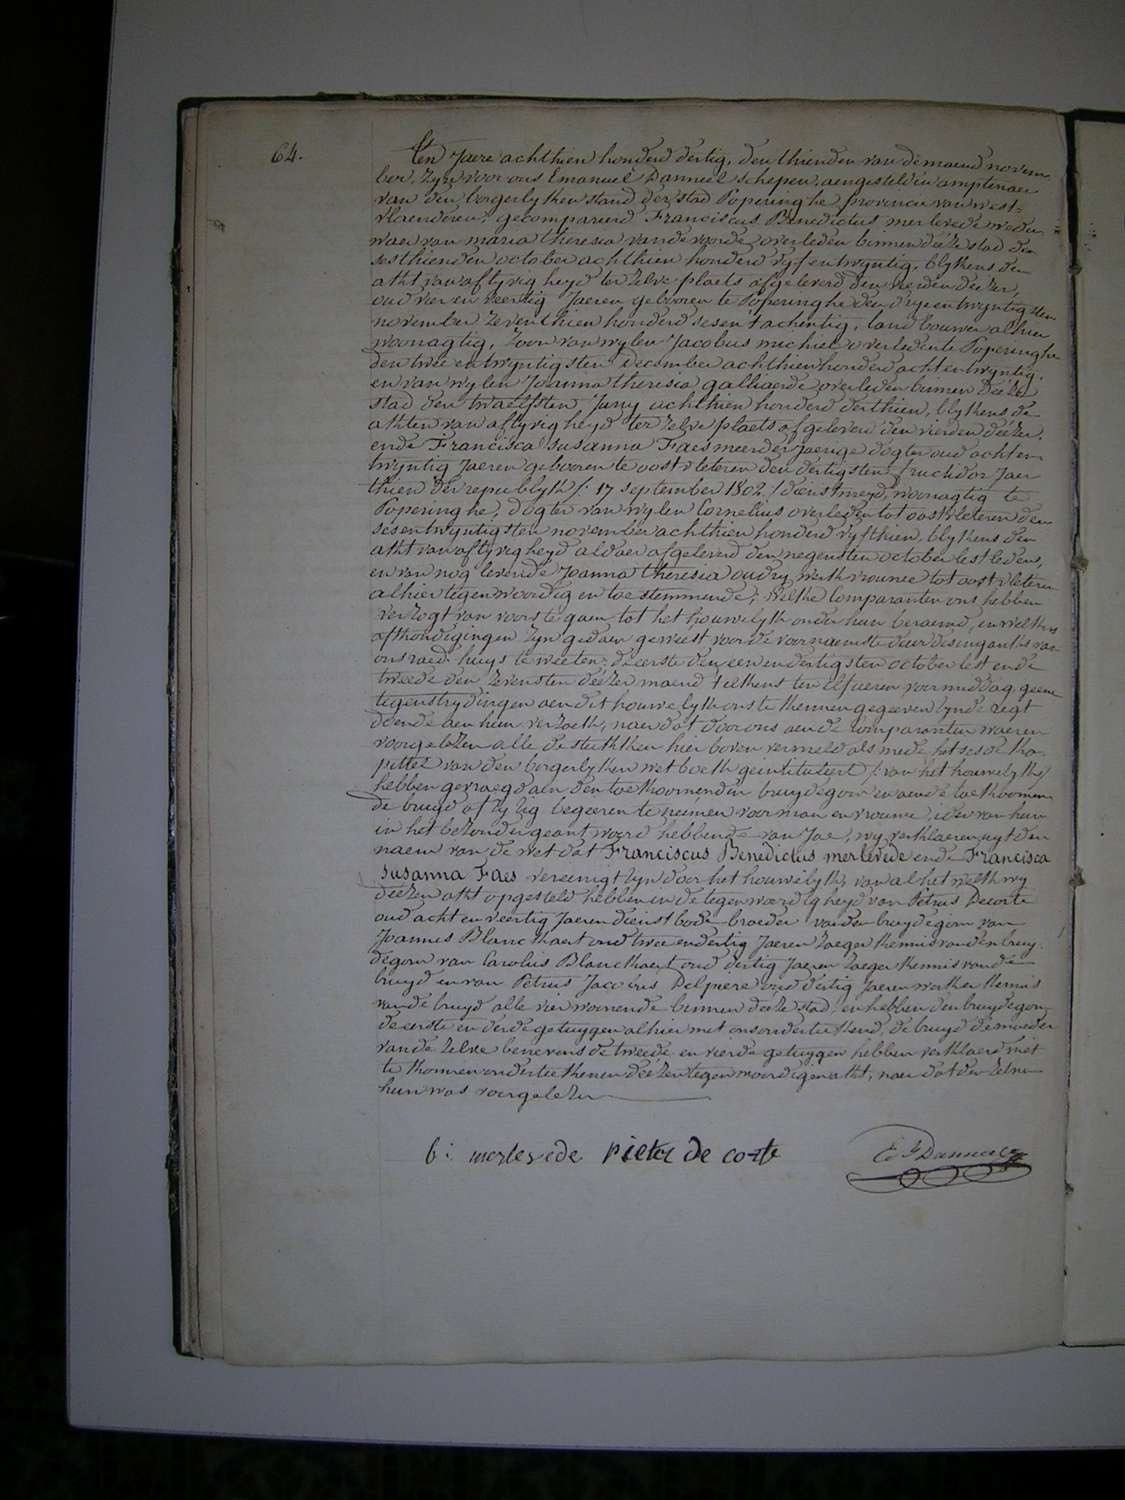 64.
Ten Jaere achthien honderd dertig, den thienden van de maend novem
ber, zyn voor ons Emanuel Danneel schepen, aengestelden amptenaer
van den borgerlyken stand der stad Poperinghe provincie van west=
vlaenderen, gecompareerd Franciscus Benedictus merlevede weduw
waer van maria theresia vande voorde overleden binnen deéze stad den
sesthienden october achthien honderd vyf en twyntig, blykens den
akt van aflyvigheyd ter zelve plaets afgeleverd den vierden deézer,
oud vier en veertig Jaeren, gebooren te Poperinghe den dryentwyntigsten
november zeventhien honderd sesen 't achentig, landbouwer alhier
woonagtig, zoon van wylen Jacobus michiel overleden te Poperinghe
den twee en twyntigsten december achthien honderd acht en twyntig,
en van wylen Joanna theresia galliaerde overleden binnen deéze
stad den twaelfsten Juny achthien honderd derthien, blykens de
akten van aflyvigheyd ter zelve plaets afgeleverd den vierden deézer,
ende Francisca susanna Faes meerderjaerige dogter oud achten
twyntig Jaeren gebooren te oostvleteren den dertigsten fructidor Jaer
thien der republyk /: 17 september 1802 :/ dienstmeyd, woonagtig te
Poperinghe, dogter van wylen Cornelius overleden tot oostvleteren den
sesentwyntigsten november achthien honderd vyfthien, blykens den
akt van aflyvigheyd aldaer afgeleverd den negensten october lestleden,
en van nog levende Joanna theresia oudry, werkvrouwe tot oostvleteren
alhier tegenwoordig en toestemmende; welke Comparanten ons hebben
verzogt van voorts te gaen tot het houwelyk onder hun beraemd, en welkers
afkondigingen zyn gedaen geweest voor de voornaemste deur des inganks van
ons raedhuys te weeten: de eerste den eenendertigsten october lest ende
tweede den zevensten deézer maend telkens ten elf ueren voormiddag, geene
tegenstrydingen aen dit houwelyk ons te kennen gegeeven zynde regt
doende aen hun verzoek, naer dat door ons aen de Comparanten waeren
voorgelezen alle de stukken hier boven vermeld als mede het sesde ka-
pittel van den borgerlyken wetboek geintituleert /: van het houwelyk :/
hebben gevraegd aen den toekoomenden bruydegom en aende toekoomen
de bruyd of zy zig begeeren te neémen voor man en vrouwe, ider van hun
in het bezonder geantwoord hebbende van Jae, wy verklaeren uyt den
naem van de wet dat Franciscus Benedictus merlevede ende Francisca
susanna Faes vereenigt zyn door het houwelyk, van al het welk wy
deézen akt opgesteld hebben in de tegenwoordigheyd van Petrus Decorte
oud acht en veertig Jaeren dienstbode broeder van den bruydegom van
Joannes Blanckaert oud twee en dertig Jaeren zaeger kennis van den bruy-
degom van Carolus Blanckaert oud dertig Jaeren zaeger kennis van de
bruyd en van Petrus Jacobus Delpiere oud dertig Jaeren werker kennis
van de bruyd alle vier woonende binnen deéze stad, en hebben den bruydegom
de eerste en derde getuygen alhier met ons onderteekend, de bruyd de moeder
van de zelve benevens de tweede en vierde getuygen hebben verklaerd niet
te konnen onderteekenen deézen tegenwoordigen akt, naer dat den zelven
hun was voorgelezen
b: merlevede pieter de corte E J Danneel